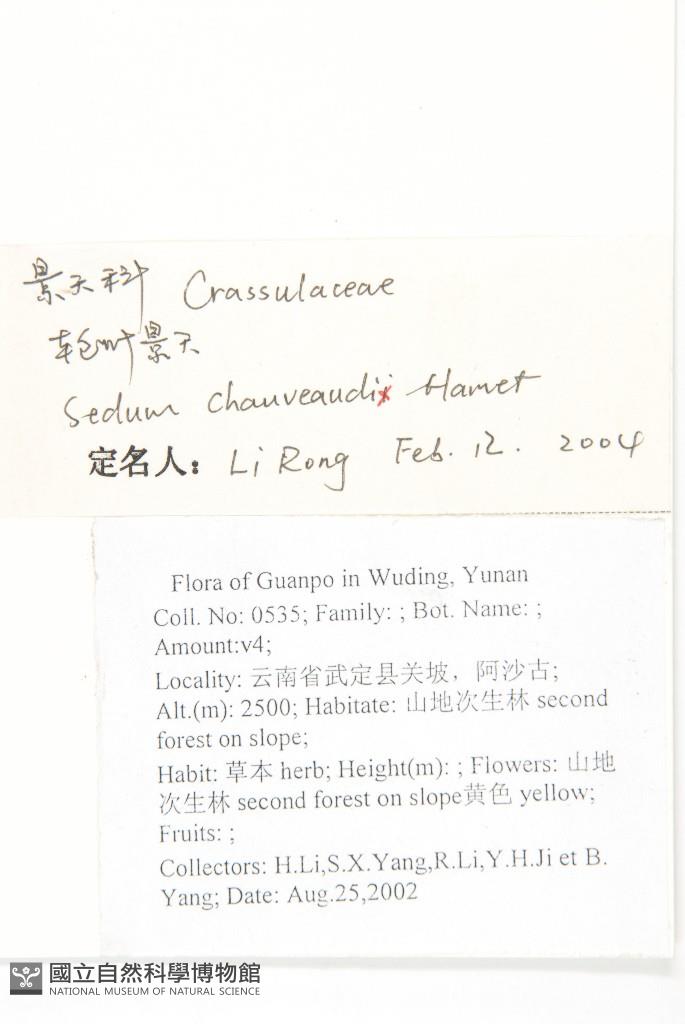 景天科 Crassulaceae
轮叶景天
Sedum chauveaudii Hamet
定名人： Li Rong Feb. 12. 2004
Flora of Guanpo in Wuding, Yunan
Coll. No: 0535; Family: ; Bot. Name: ;
Amount:v4;
Locality: 云南省武定县关坡，阿沙古;
Alt.(m): 2500; Habitate: 山地次生林 second
forest on slope;
Habit: 草本 herb; Height(m): ; Flowers: 山地
次生林 second forest on slope黄色 yellow;
Fruits: ;
Collectors: H.Li,S.X.Yang,R.Li,Y.H.Ji et B.
Yang; Date: Aug.25,2002
國立自然科學博物館
NATIONAL MUSEUM OF NATURAL SCIENCE